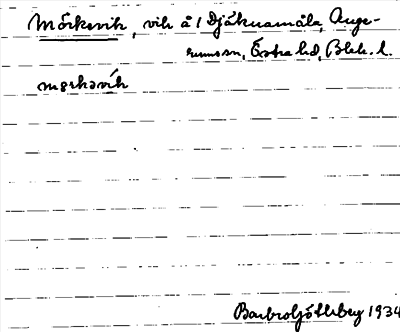 Mörksvik, vik å 1 Djäknamåla, Auge-
rums sn, Östra hd, Blek. l.
mərkəvik
Barbro Ljöttsberg 1934